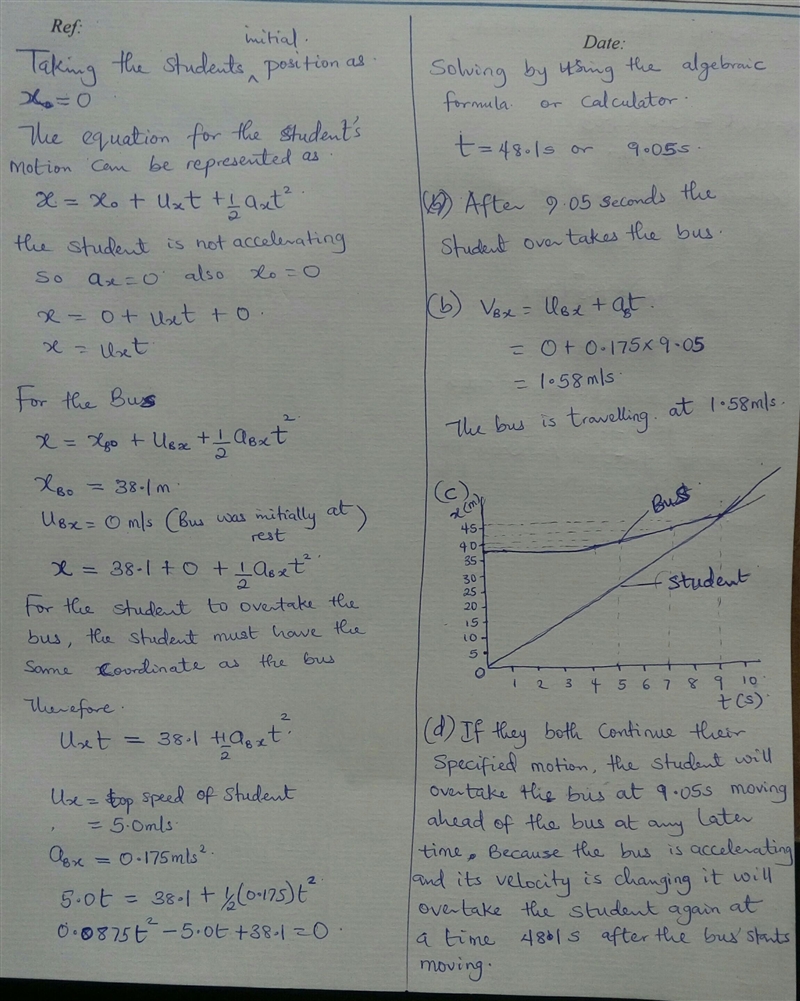 Ref:
Taking the students ^ initial. position as
x₀ = 0
The equation for the student's
motion can be represented as.
x = x₀ + uₓt + ½aₓt².
the student is not accelerating
so aₓ = 0 also x₀ = 0
x = 0 + uₓt + 0.
x = uₓt
For the Bus
x = x_B0 + u_Bx + ½a_Bxt²
x_B0 = 38.1m
u_Bx = 0 m/s (Bus was initially at
rest)
x = 38.1 + 0 + ½a_Bxt²
For the student to overtake the
bus, the student must have the
same coordinate as the bus
Therefore.
uₓt = 38.1 + ½a_Bxt²
uₓ = top speed of student
= 5.0m/s
a_Bx = 0.175m/s².
5.0t = 38.1 + ½(0.175)t²
0.0875t² - 5.0t + 38.1 = 0.
Date:
Solving by using the algebraic
formula. or calculator.
t = 48.1s or 9.05s.
After 9.05 seconds the
student overtakes the bus.
(b) V_Bx = u_Bx + a_Bt.
= 0 + 0.175 x 9.05
= 1.58m/s.
The bus is travelling. at 1.58m/s.
(c)
x(m)
Bus
45
40
35
30
25
20
15
10
5
0
Student
1 2 3 4 5 6 7 8 9 10
t(s)
(d) If they both continue their
specified motion, the student will
overtake the bus at 9.05s moving
ahead of the bus at any later
time. Because the bus is accelerating
and its velocity is changing it will
overtake the student again at
a time 48.1s after the bus starts
moving.